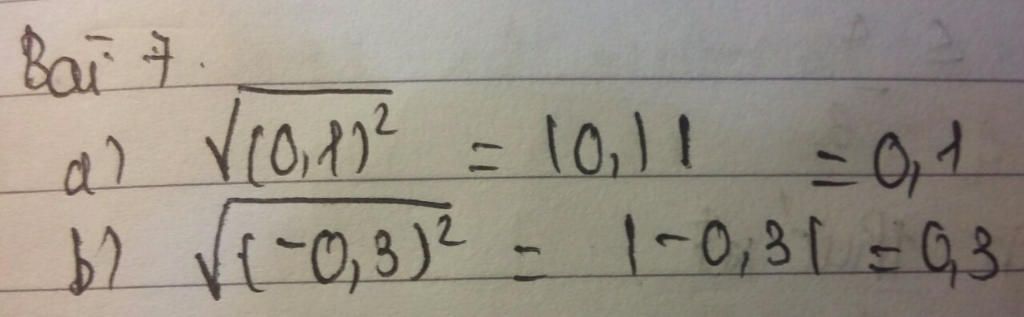 Bài 7.
a) √(0,1)² = |0,1| = 0,1
b) √(-0,3)² = |-0,3| = 0,3